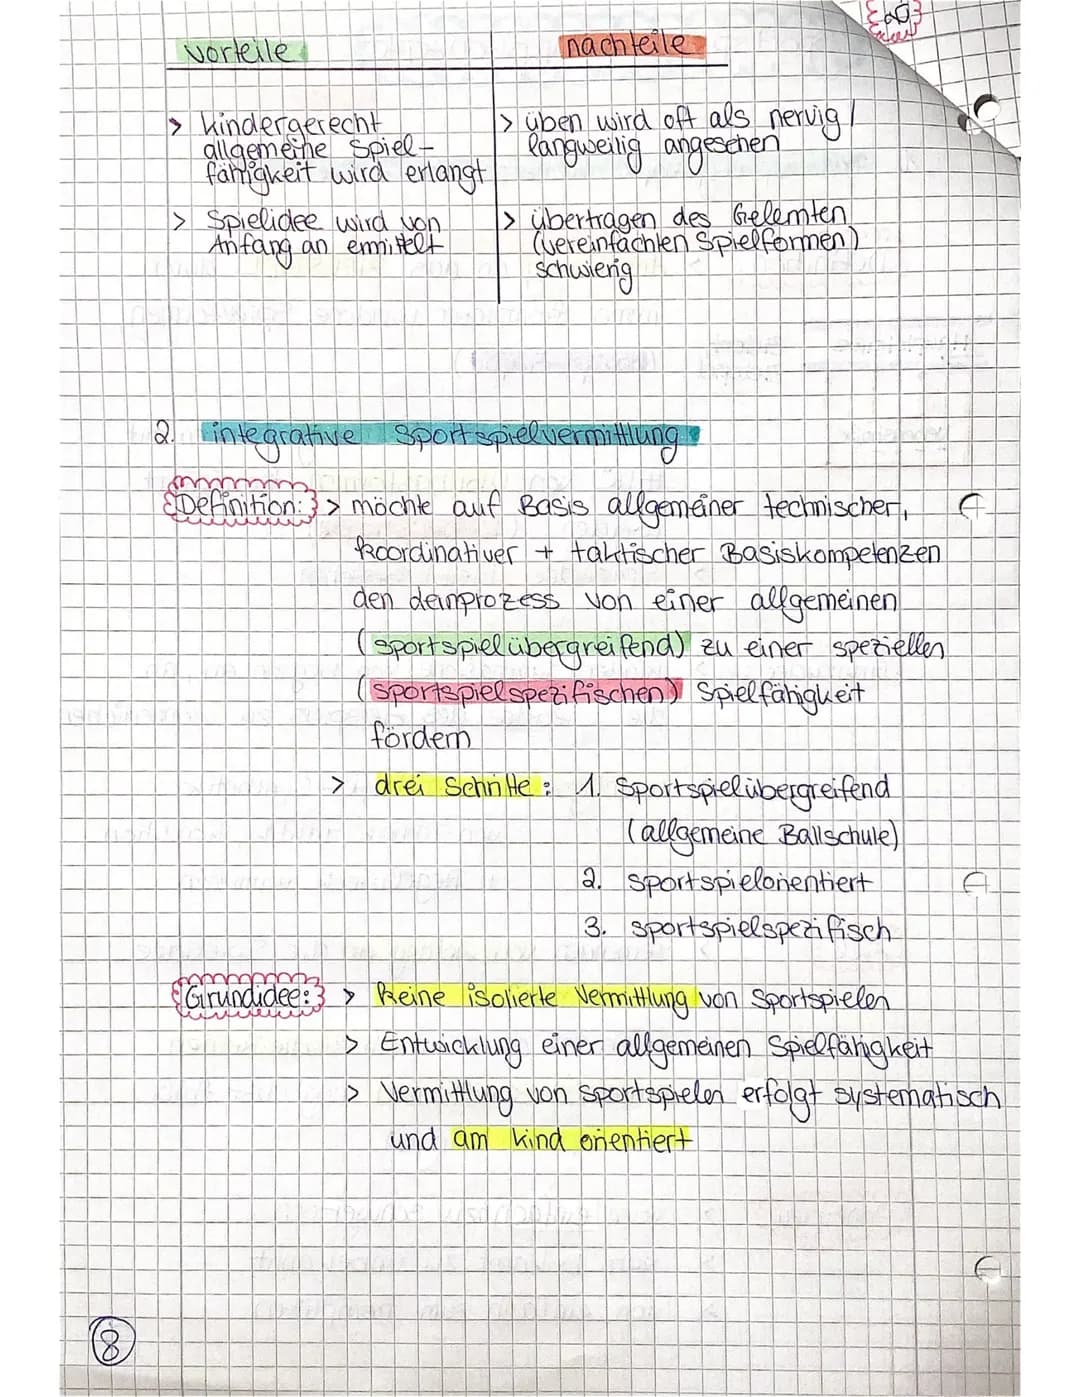 vorteile
nachteile
> kindergerecht
allgemeine Spiel-
fähigkeit wird erlangt
> Spielidee wird von
Anfang an ermittelt
> üben wird oft als nervig /
langweilig angesehen
> übertragen des Gelernten
(vereinfachten Spielformen)
schwierig
2. integrative Sportspielvermittlung
Definition: > möchte auf Basis allgemeiner technischer,
koordinativer + taktischer Basiskompetenzen
den Lernprozess von einer allgemeinen
(sportspielübergreifend) zu einer speziellen
(sportspielspezifischen) Spielfähigkeit
fördern
> drei Schritte: 1. Sportspielübergreifend
(allgemeine Ballschule)
2. sportspielorientiert
3. sportspielspezifisch
Grundidee: > Keine isolierte Vermittlung von Sportspielen
> Entwicklung einer allgemeinen Spielfähigkeit
> Vermittlung von Sportspielen erfolgt systematisch
und am Kind orientiert
8